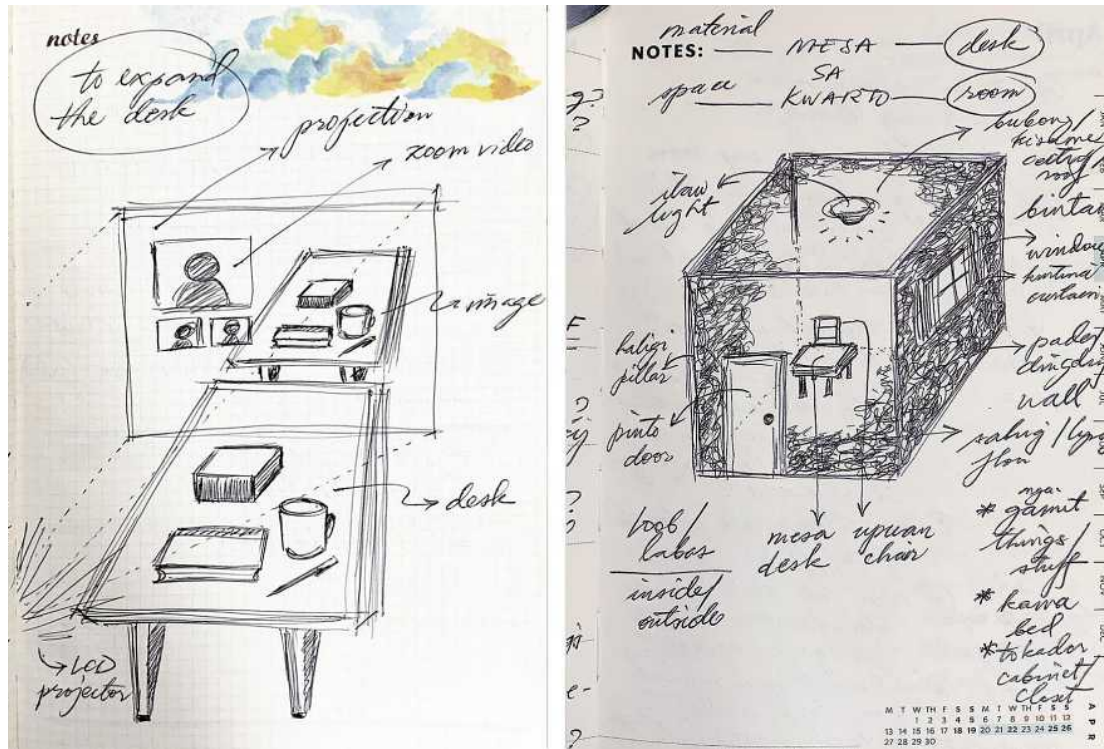 notes
to expand
the desk
projection
zoom video
image
desk
LCD
projector
material
NOTES: — MESA — desk
SA
space — KWARTO — room
bubong/
kisame
roof
ilaw
light
bintana
window
kurtina
curtain
haligi
pillar
pader/
dingding
wall
pinto
door
sahig/
floor
loob/
labas
inside/
outside
mesa
desk
upuan
chair
mga
* gamit
things/
stuff
* kama
bed
* tokador
cabinet/
closet
M T W TH F S S M T W TH F S S
1 2 3 4 5 6 7 8 9 10 11 12
13 14 15 16 17 18 19 20 21 22 23 24 25 26
27 28 29 30
A P R